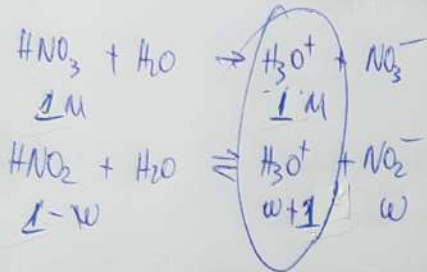 HNO₃ + H₂O → H₃O⁺ + NO₃⁻
1 M 1 M
HNO₂ + H₂O ⇌ H₃O⁺ + NO₂⁻
1-w w+1 w